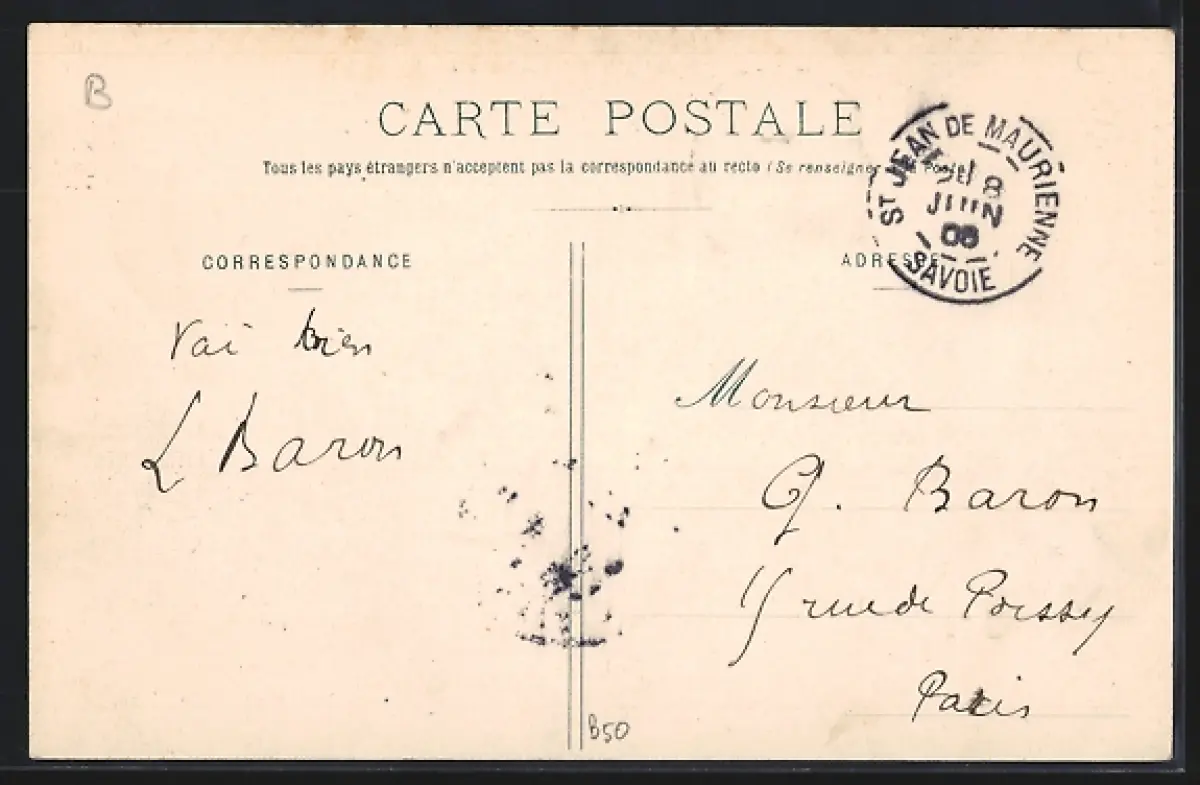 B
CARTE POSTALE
Tous les pays étrangers n'acceptent pas la correspondance au recto (Se renseigner à la Poste)
ST JEAN DE MAURIENNE
8
JUIN
08
SAVOIE
CORRESPONDANCE
ADRESSE
Vai bien
L Baron
Monsieur
G. Baron
rue de Poissy
Paris
B50